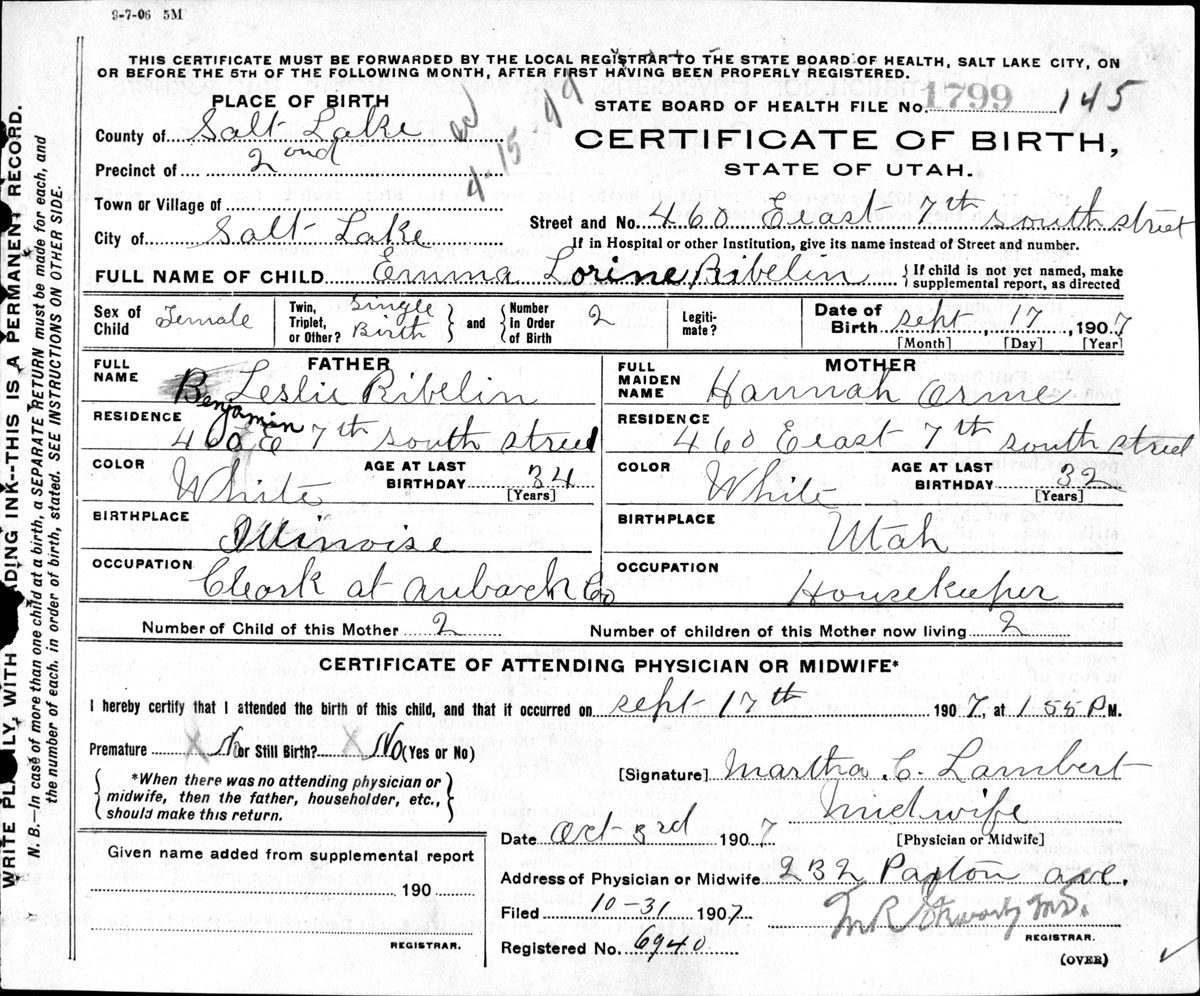 9-7-06 5M
THIS CERTIFICATE MUST BE FORWARDED BY THE LOCAL REGISTRAR TO THE STATE BOARD OF HEALTH, SALT LAKE CITY, ON
OR BEFORE THE 5TH OF THE FOLLOWING MONTH, AFTER FIRST HAVING BEEN PROPERLY REGISTERED.
PLACE OF BIRTH
STATE BOARD OF HEALTH FILE No. 1799 145
County of Salt Lake
4-15-49
CERTIFICATE OF BIRTH,
STATE OF UTAH.
Precinct of 2ond
Town or Village of
Street and No. 460 Eeast 7th south street
City of Salt Lake
If in Hospital or other Institution, give its name instead of Street and number.
FULL NAME OF CHILD Emma Lorine Ribelin { If child is not yet named, make
supplemental report, as directed
Sex of Child Female
Twin, Triplet, or Other? Single Birth } and { Number In Order of Birth 2
Legiti-mate?
Date of Birth sept 17, 1907
[Month] [Day] [Year]
FATHER
FULL NAME B Leslie Ribelin
Benjamin
RESIDENCE
460 E 7th south street
COLOR White AGE AT LAST BIRTHDAY 34
[Years]
BIRTHPLACE
Illinoise
OCCUPATION
Cleark at aubach Co
MOTHER
FULL MAIDEN NAME Hannah Orme
RESIDENCE
460 Eeast 7th south street
COLOR White AGE AT LAST BIRTHDAY 32
[Years]
BIRTHPLACE
Utah
OCCUPATION
Housekeeper
Number of Child of this Mother 2 Number of children of this Mother now living 2
CERTIFICATE OF ATTENDING PHYSICIAN OR MIDWIFE*
I hereby certify that I attended the birth of this child, and that it occurred on sept 17th 1907, at 1 55 P M.
Premature X No or Still Birth? X No (Yes or No)
{ *When there was no attending physician or
midwife, then the father, householder, etc.,
should make this return. }
[Signature] Martha C. Lambert
Midwife
Date Oct 3rd 1907 [Physician or Midwife]
Given name added from supplemental report
190
REGISTRAR.
Address of Physician or Midwife 232 Paxton ave.
Filed 10-31 1907
REGISTRAR.
Registered No. 6940
(OVER)
WRITE PLAINLY, WITH ADING INK--THIS IS A PERMANENT RECORD.
N. B.—In case of more than one child at a birth, a SEPARATE RETURN must be made for each, and
the number of each, in order of birth, stated. SEE INSTRUCTIONS ON OTHER SIDE.